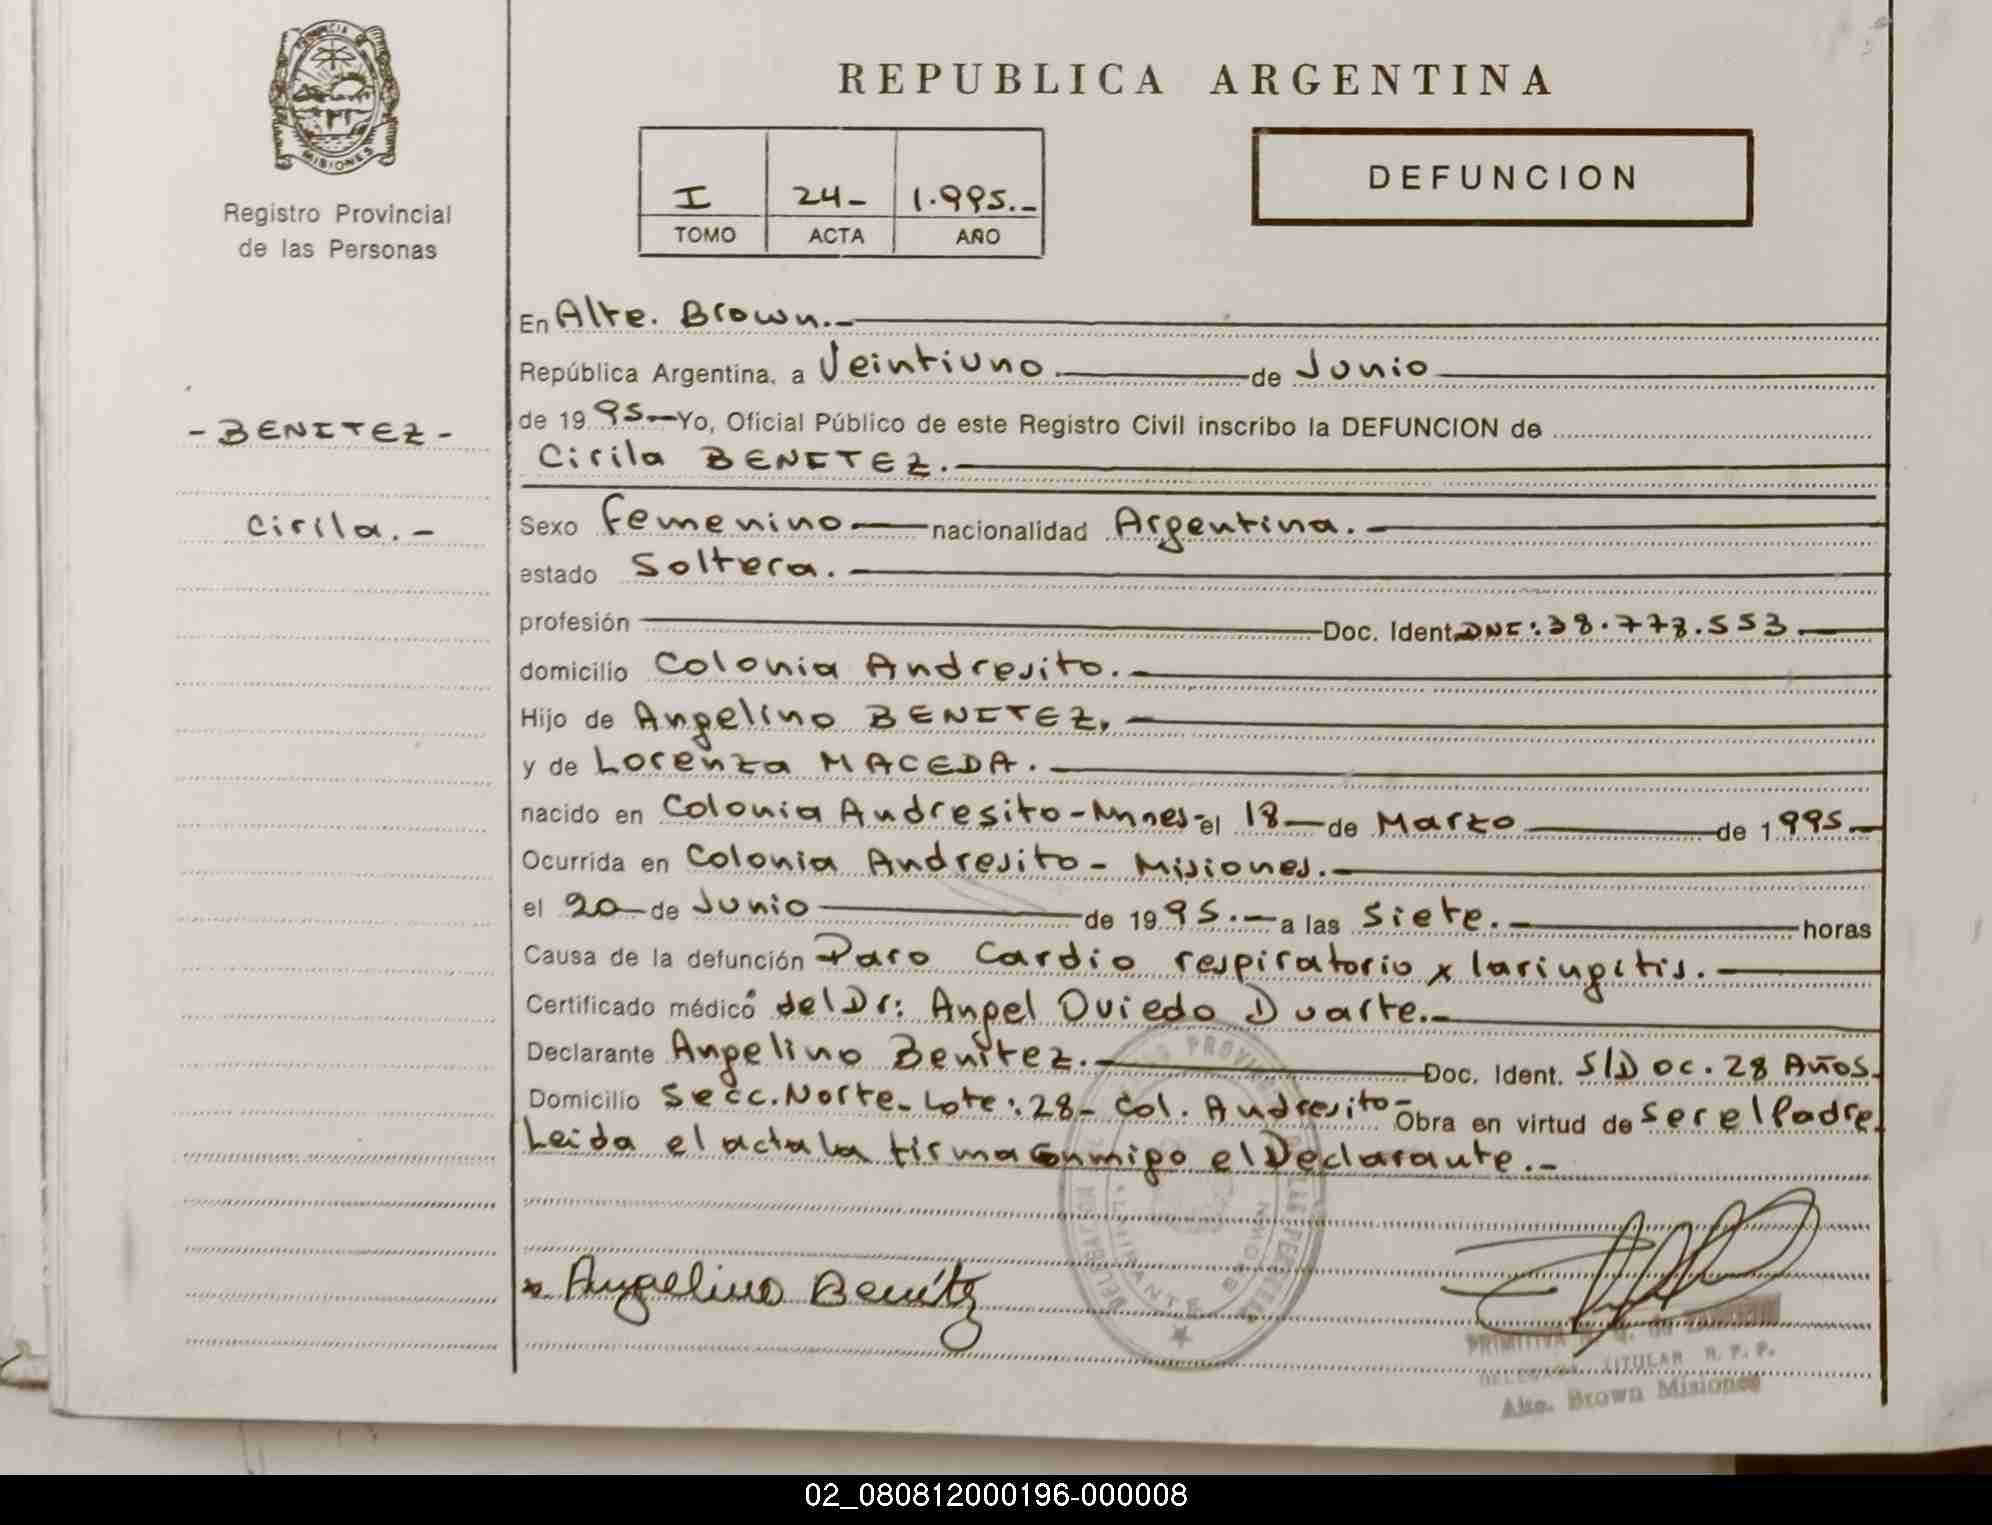 PROVINCIA DE
MISIONES
Registro Provincial
de las Personas
- BENITEZ -
Cirila.-
REPUBLICA ARGENTINA
I 24- 1.995.-
TOMO ACTA AÑO
DEFUNCION
En Alte. Brown.-
República Argentina, a Veintiuno de Junio
de 1995.- Yo, Oficial Público de este Registro Civil inscribo la DEFUNCION de
Cirila BENITEZ.-
Sexo Femenino nacionalidad Argentina.-
estado Soltera.-
profesión Doc. Ident. DNI: 38.773.553.-
domicilio Colonia Andresito.-
Hijo de Angelino BENITEZ,-
y de Lorenza MACEDA.-
nacido en Colonia Andresito-Mnnes- el 18 de Marzo de 1995-
Ocurrida en Colonia Andresito- Misiones.-
el 20 de Junio de 1995.- a las Siete.- horas
Causa de la defunción Paro Cardio respiratorio x laringitis.-
Certificado médico del Dr: Angel Oviedo Duarte.-
Declarante Angelino Benitez.- Doc. Ident. S/Doc. 28 Años.
Domicilio Secc. Norte- Lote: 28- Col. Andresito- Obra en virtud de ser el Padre.
Leida el acta la firma Conmigo el Declarante.-
x Angelino Benítez
ALMIRANTE BROWN
PRIMITIVA
DELEGADA TITULAR R. P. P.
Alte. Brown Misiones
02_080812000196-000008